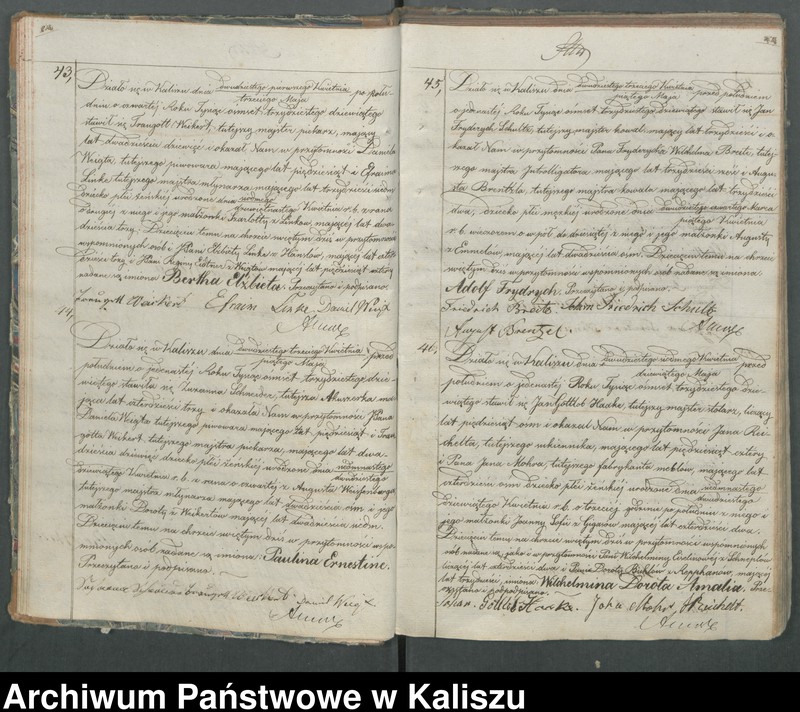 43,
Działo się w Kaliszu dnia dwudziestego pierwszego Kwietnia po połu-
trzeciego Maja
dniu o czwartej Roku Tysiąc ośmset trzydziestego dziewiątego
stawił się Traugott Weikert, tutejszy majster piekarz, mający
lat dwadzieścia dziewięć i okazał Nam w przytomności Daniela
Weigta, tutejszego piwowara mającego lat pięćdziesiąt i Efraima
Linke tutejszego majstra młynarza mającego lat trzydzieści siedm
dziecko płci żeńskiej urodzone dnia siódmego
dziewiętnastego Kwietnia r. b. z rana
o drugiej z niego i jego małżonki Karolotty z Linków, mającej lat dwa-
dzieścia trzy. Dziecięciu temu na chrzcie świętym dziś w przytomności
wspomnionych osób i Panu Elżbiety Linke z Hänslow, mającej lat
dzieści trzy i Panu z Weigtów mającej lat pięćdziesiąt cztery
nadane są imiona Bertha Elżbieta. Przeczytano i podpisano.
Traugott Weickert Efraim Linke, Daniel Weigt
44,
Działo się w Kaliszu dnia dwudziestego trzeciego Kwietnia przed
piątego Maja
południem o jedenastej Roku Tysiąc ośmset trzydziestego dzie-
wiątego stawiła się Zuzanna Schneider, tutejsza Akuszerka ma-
jąca lat czterdzieści trzy i okazała Nam w przytomności Pana
Daniela Weigta tutejszego piwowara mającego lat pięćdziesiąt i Trau-
gotta Weikert, tutejszego majstra piekarza, mającego lat dwa-
dzieścia dziewięć, dziecko płci żeńskiej urodzone dnia siedmnastego
dwudziestego
dziewiątego Kwietnia r. b. z rana o czwartej z Augusta
tutejszego majstra młynarza mającego lat dwadzieścia ośm i jego
małżonki Doroty z Weikertów mającej lat dwadzieścia siedm.
Dziecięciu temu na chrzcie świętym dziś w przytomności wspo-
mnionych osób nadane są imiona: Paulina Ernestine.
Przeczytano i podpisano.
Traugott Weickert Daniel Weigt
45,
Działo się w Kaliszu dnia dwudziestego trzeciego Kwietnia przed południem
piątego Maja
o jedenastej Roku Tysiąc ośmset trzydziestego dziewiątego stawił się Jan
Frydrych Schultz, tutejszy majster kowal mający lat trzydzieści i o-
kazał Nam w przytomności Pana Frydrycha Wilhelma Breite, tutej-
szego majstra Introligatora mającego lat trzydzieści sześć i Augu-
sta Brentzla, tutejszego majstra kowala mającego lat trzydzieści
dwa, dziecko płci męskiej urodzone dnia dwudziestego czwartego Marca
piątego Kwietnia
r. b. wieczorem o wpół do dziesiątej z niego i jego małżonki Augusty
z Emmelów mającej lat dwadzieścia ośm. Dziecięciu temu na chrzcie
świętym dziś w przytomności wspomnionych osób nadane są imiona:
Adolf Frydrych. Przeczytano i podpisano.
Friedrich Breite, Johan Friedrich Schultz
August Brentzel.
46,
Działo się w Kaliszu dnia dwudziestego siódmego Kwietnia przed
dziewiątego Maja
południem o jedenastej, Roku Tysiąc ośmset trzydziestego dzie-
wiątego stawił się Jan Gottlob Hacke, tutejszy majster stolarz, liczący
lat pięćdziesiąt ośm i okazał Nam w przytomności Jana Rei-
chelta, tutejszego sukiennika, mającego lat pięćdziesiąt cztery
i Pana Jana Mohra, tutejszego fabrykanta meblów, mającego lat
czterdzieści ośm dziecko płci żeńskiej urodzone dnia siedmnastego
dwudziestego
dziewiątego Kwietnia r. b. o trzeciej godzinie po południu z niego i
jego małżonki Joanny Zofii z Tygarów mającej lat czterdzieści dwa.
Dziecięciu temu na chrzcie świętym dziś w przytomności wspomnionych
osób nadane są, jako i w przytomności Panu Wilhelminy
liczącej lat czterdzieści dwa i Panu Doroty z mającej
lat trzydzieści, imiona Wilhelmina Dorota Amalia. Prze-
czytano i podpisano.
Johan. Gottlob Hacke. Joha Mohr, Reichelt.
Archiwum Państwowe w Kaliszu